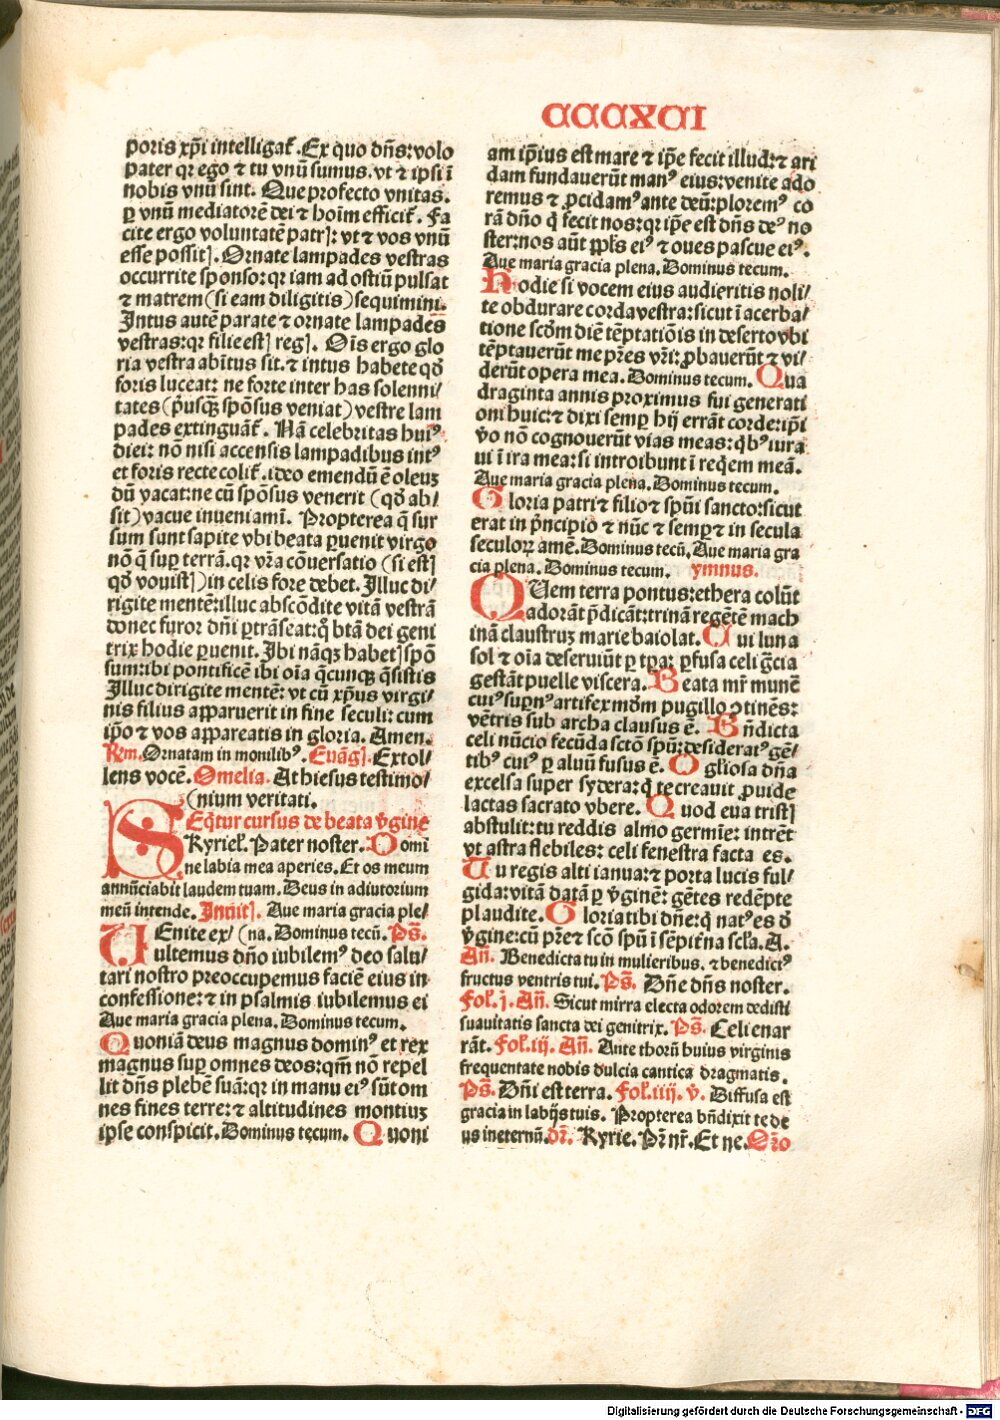 CCCXCI
poris xp̄i intelligat᷑. Ex quo dn̄s: volo
pater qr ego ⁊ tu vnū sumus. vt ⁊ ipsi ī
nobis vnū sint. Que profecto vnitas.
ꝑ vnū mediatorē dei ⁊ hoīm efficit᷑. Fa
cite ergo voluntatē patrꝭ: vt ⁊ vos vnū
esse possitꝭ. Ornate lampades vestras
occurrite sponso: qr iam ad ostiū pulsat
⁊ matrem (si eam diligitis) sequimini.
Intus autē parate ⁊ ornate lampades
vestras: qr filie estꝭ regꝭ. Oīs ergo glo
ria vestra abītus sit. ⁊ intus habete qd̄
foris luceat: ne forte inter has solenni/
tates (p̄usqꝫ spōsus veniat) vestre lam
pades extinguāt᷑. Nā celebritas huiꝰ
diei: nō nisi accensis lampadibus intꝰ
et foris recte colit᷑. ideo emendū ē oleuꝫ
dū vacat: ne cū spōsus venerit (qd̄ ab/
sit) vacue inueniami. Propterea q̄ sur
sum sunt sapite vbi beata ꝑuenit virgo
nō q̄ suꝑ terrā. qr vr̄a cōuersatio (si estꝭ
qd̄ vouistꝭ) in celis fore debet. Illuc di/
rigite mentē: illuc abscōdite vitā vestrā
donec furor dn̄i ꝑtrāseat: q̄ btā dei geni
trix hodie ꝑuenit. Ibi nāqꝫ habetꝭ spō
sum: ibi pontificē ibi oīa q̄cunqꝫ q̄sistis
Illuc dirigite mentē: vt cū xp̄us virgi/
nis filius apparuerit in fine seculi: cum
ip̄o ⁊ vos appareatis in gloria. Amen.
Rm̄. Ornatam in monilibꝰ. Euāgꝭ. Extol/
lens vocē. Omelia. At hiesus testimo/
(nium veritati.
SEq̄tur cursus de beata v̄gine
Kyriel᷑. Pater noster. Domi
ne labia mea aperies. Et os meum
annūciabit laudem tuam. Deus in adiutorium
meū intende. Inuitꝭ. Aue maria gracia ple/
VEnite ex/ (na. Dominus tecū. Ps̄.
ultemus dn̄o iubilemꝰ deo salu/
tari nostro preoccupemus faciē eius in
confessione: ⁊ in psalmis iubilemus ei
Aue maria gracia plena. Dominus tecum.
Quoniā deus magnus dominꝰ et rex
magnus suꝑ omnes deos: qm̄ nō repel
lit dn̄s plebē suā: qr in manu eiꝰ sūt om
nes fines terre: ⁊ altitudines montiuꝫ
ipse conspicit. Dominus tecum. Quoni
am ip̄ius est mare ⁊ ip̄e fecit illud: ⁊ ari
dam fundauerūt manꝰ eius: venite ado
remus ⁊ ꝓcidamꝰ ante deū: ploremꝰ co
rā dn̄o q̇ fecit nos: qr ip̄e est dn̄s deꝰ no
ster: nos aūt pp̄ls eiꝰ ⁊ oues pascue eiꝰ.
Aue maria gracia plena. Dominus tecum.
Hodie si vocem eius audieritis noli/
te obdurare corda vestra: sicut ī acerba/
tione scd̄m diē tēptatiōis in deserto vbi
tēptauerūt me pr̄es vr̄i: ꝓbauerūt ⁊ vi/
derūt opera mea. Dominus tecum. Qua
draginta annis proximus fui generati
oni huic: ⁊ dixi semꝑ hij errāt corde: ip̄i
v̄o nō cognouerūt vias meas: qͥbꝰ iura
ui ī ira mea: si introibunt ī req̄em meā.
Aue maria gracia plena. Dominus tecum.
Gloria patri ⁊ filio ⁊ spūi sancto: sicut
erat in p̄ncipio ⁊ nūc ⁊ semꝑ ⁊ in secula
seculoꝝ amē. Dominus tecū. Aue maria gra
cia plena. Dominus tecum. ymnus.
QUem terra pontus: ethera colūt
adorāt p̄dicāt: trinā regētē mach
inā claustruꝫ marie baiolat. Cui luna
sol ⁊ oīa deseruiūt ꝑ tp̄a: ꝑfusa celi gr̄cia
gestāt puelle viscera. Beata mr̄ munē
cuiꝰ supnꝰ artifex mōm pugillo ꝯtinēs:
vētris sub archa clausus ē. Bn̄dicta
celi nūcio fecūda sctō spū: desideratꝰ gē/
tibꝰ cuiꝰ ꝑ aluū fusus ē. O gl̄iosa dn̄a
excelsa super sydera: q̇ te creauit ꝓuide
lactas sacrato vbere. Quod eua tristꝭ
abstulit: tu reddis almo germīe: intrēt
vt astra flebiles: celi fenestra facta es.
Tu regis alti ianua: ⁊ porta lucis ful/
gida: vitā datā ꝑ v̄ginē: gētes redēpte
plaudite. Gloria tibi dn̄e: q̇ natꝰ es d̄
v̄gine: cū pr̄e ⁊ scō spū ī sēpit̄na scl̄a. A.
An̄. Benedicta tu in mulieribus. ⁊ benedictꝰ
fructus ventris tui. Ps̄. Dn̄e dn̄s noster.
Fol᷑. j. An̄. Sicut mirra electa odorem dedisti
suauitatis sancta dei genitrix. Ps̄. Celi enar
rāt. Fol᷑. iij. An̄. Ante thorū huius virginis
frequentate nobis dulcia cantica dragmatis.
Ps̄. Dn̄i est terra. Fol᷑. iiij. v̄. Diffusa est
gracia in labijs tuis. Propterea bn̄dixit te de
us in eternū. dr̄. Kyrie. Pr̄ nr̄. Et ne. Or̄o
Digitalisierung gefördert durch die Deutsche Forschungsgemeinschaft - DFG